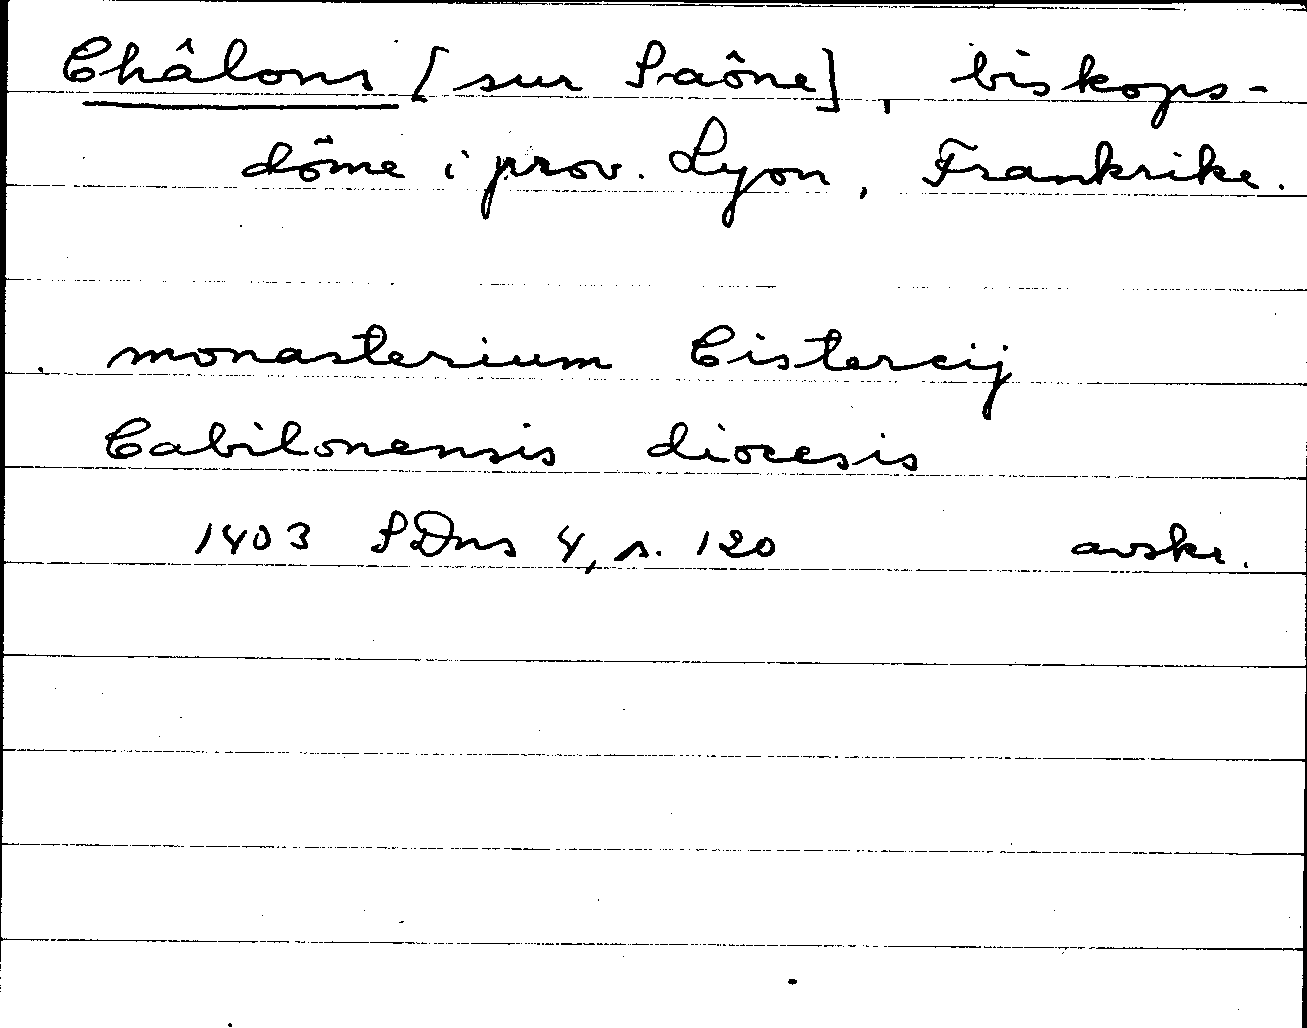 Châlons [sur Saône], biskops-
döme i prov. Lyon, Frankrike.
monasterium Cistercij
Cabilonensis diocesis
1403 SDns 4, s. 120 avskr.